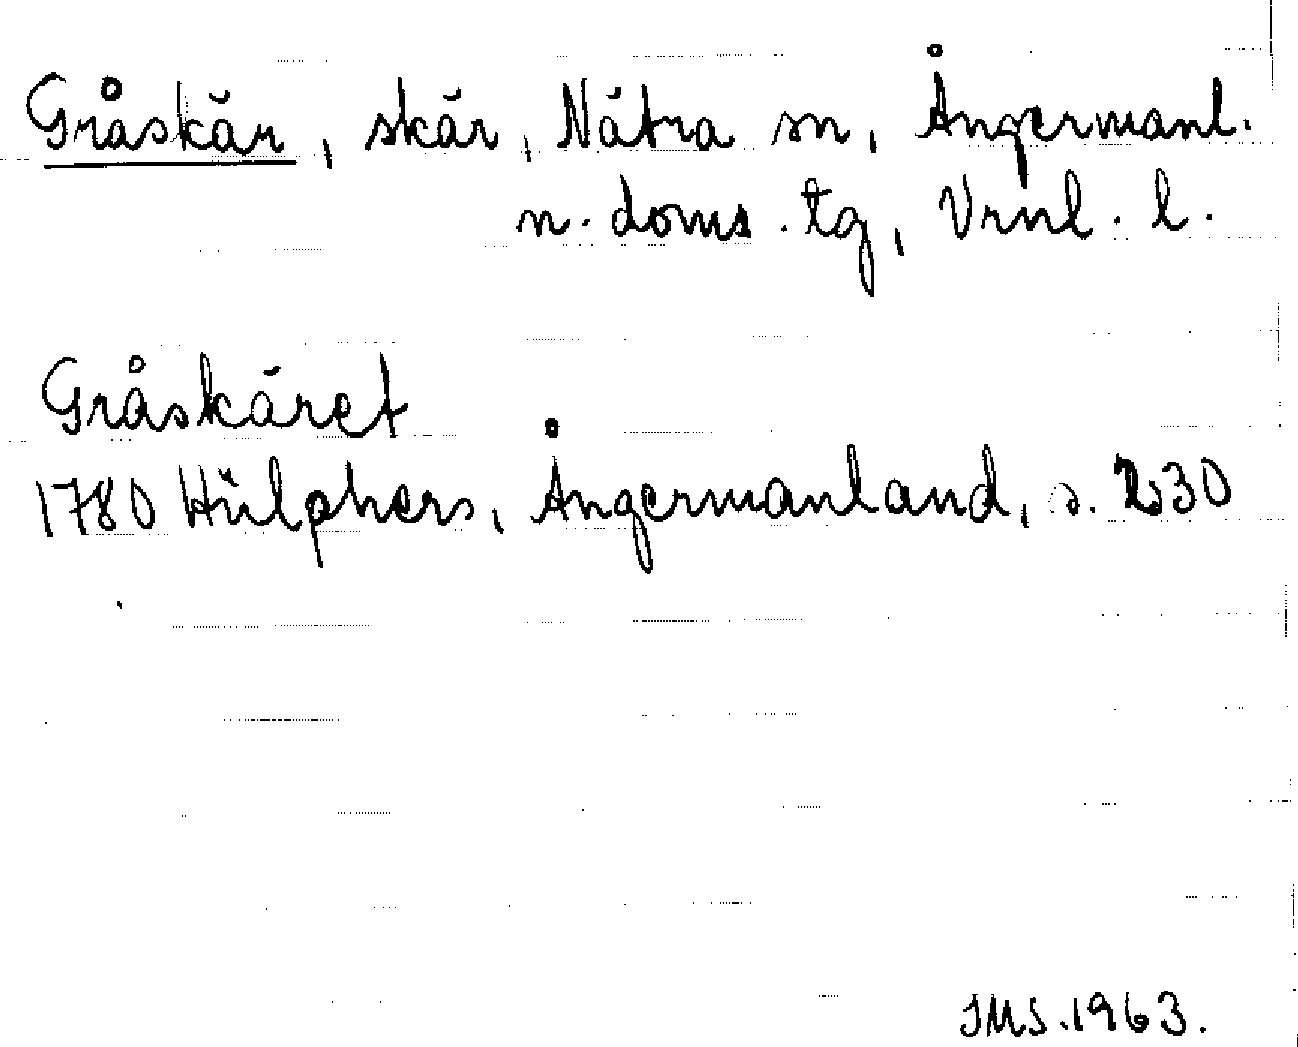 Gråskär, skär, Nätra sn, Ångermanl.
n. doms. tg, Vrnl. l.
Gråskäret
1780 Hülphers, Ångermanland, s. 230
JMS. 1963.